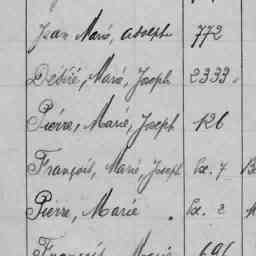 Jean Marie, Adolphe 772
Désiré, Marie, Joseph 2333
Pierre, Marie, Joseph 126
François, Marie, Joseph Ex. 7
Pierre, Marie. Ex. 2
François, Marie 691